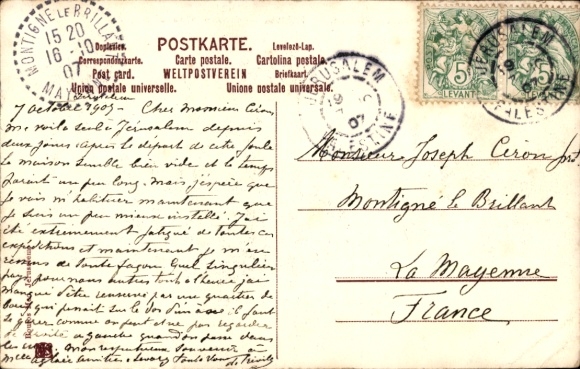 MONTIGNÉ LE BRILLANT
15 20
16 -10
07
MAYENNE
POSTKARTE.
Dopisnice. Levelező-Lap.
Correspondenzkarte. Carte postale. Cartolina postale.
Post card. WELTPOSTVEREIN Briefkaart.
Union postale universelle. Unione postale universale.
JERUSALEM
07
PALESTINE
5 5
LEVANT
JERUSALEM
07
PALESTINE
Jérusalem
7 octobre 1907 Cher Monsieur Céron
Me voila seul à Jérusalem depuis
deux jours; après le depart de cette foule
la maison semble bien vide et le temps
parait un peu long. Mais j'espère que
je vais m'habituer maintenant que
je suis un peu mieux installé. J'ai
été extrêmement fatigué de toutes ces
expéditions et maintenant je m'en
ressens de toute façon. Quel singulier
pays pour nous autres tout à l'heure j'ai
manqué d'être renversé par un quartier de
bois qui pensait sur le dos d'un âne il faut
se garer comme on peut et ne pas regarder
à gauche quand on passe dans
les rues. Mon respectueux souvenir à
Monsieur Joseph Céron
Montigné le Brillant
La Mayenne
France